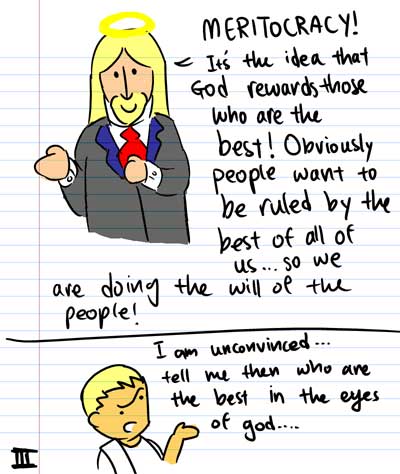 MERITOCRACY!
It's the idea that
God rewards those
who are the
best! Obviously
people want to
be ruled by the
best of all of
us... so we
are doing the will of the
people!
I am unconvinced...
tell me then who are
the best in the eyes
of god....
III